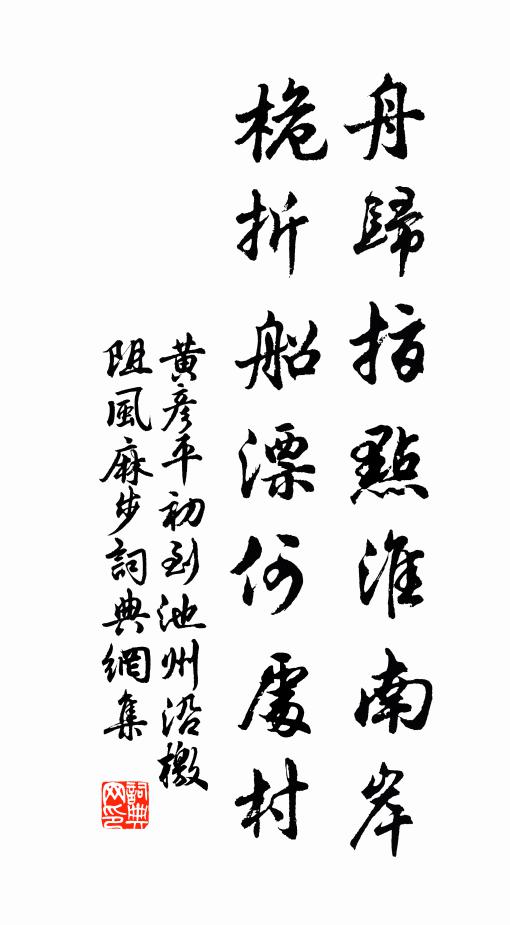 舟歸指點淮南岸
桅折船漂何處村
黃彦平初到池州沿檄
阻風麻步詞典網集
詞典
网印